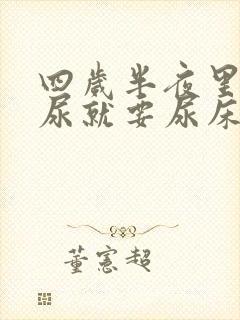 四歲半夜里
尿就要尿床
董憲超